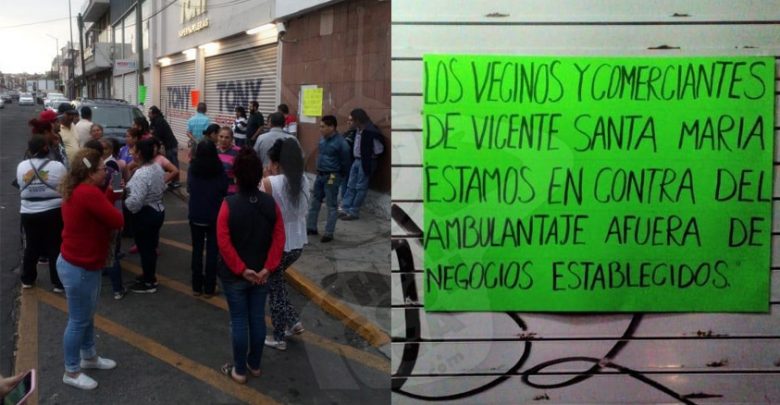 TONY
TONY
TONY
LOS VECINOS Y COMERCIANTES
DE VICENTE SANTA MARIA
ESTAMOS EN CONTRA DEL
AMBULANTAJE AFUERA DE
NEGOCIOS ESTABLECIDOS.